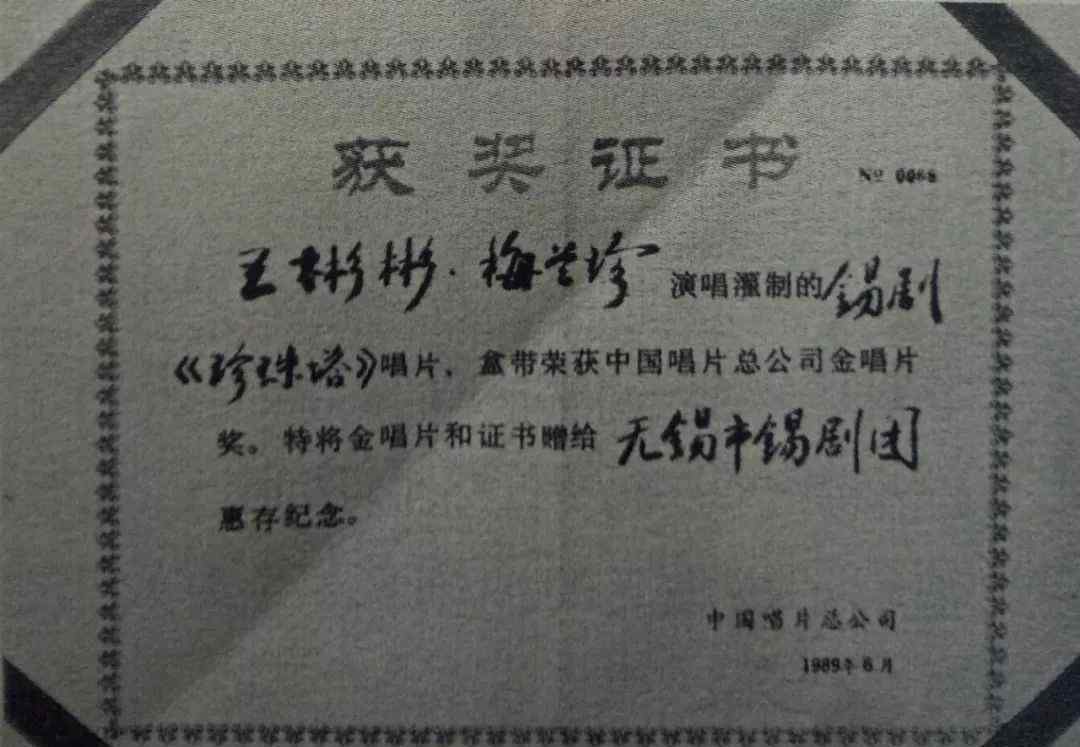 获奖证书
№ 0088
王彬彬·梅兰珍 演唱灌制的锡剧
《珍珠塔》唱片、盒带荣获中国唱片总公司金唱片
奖。特将金唱片和证书赠给 无锡市锡剧团
惠存纪念。
中国唱片总公司
1989年6月